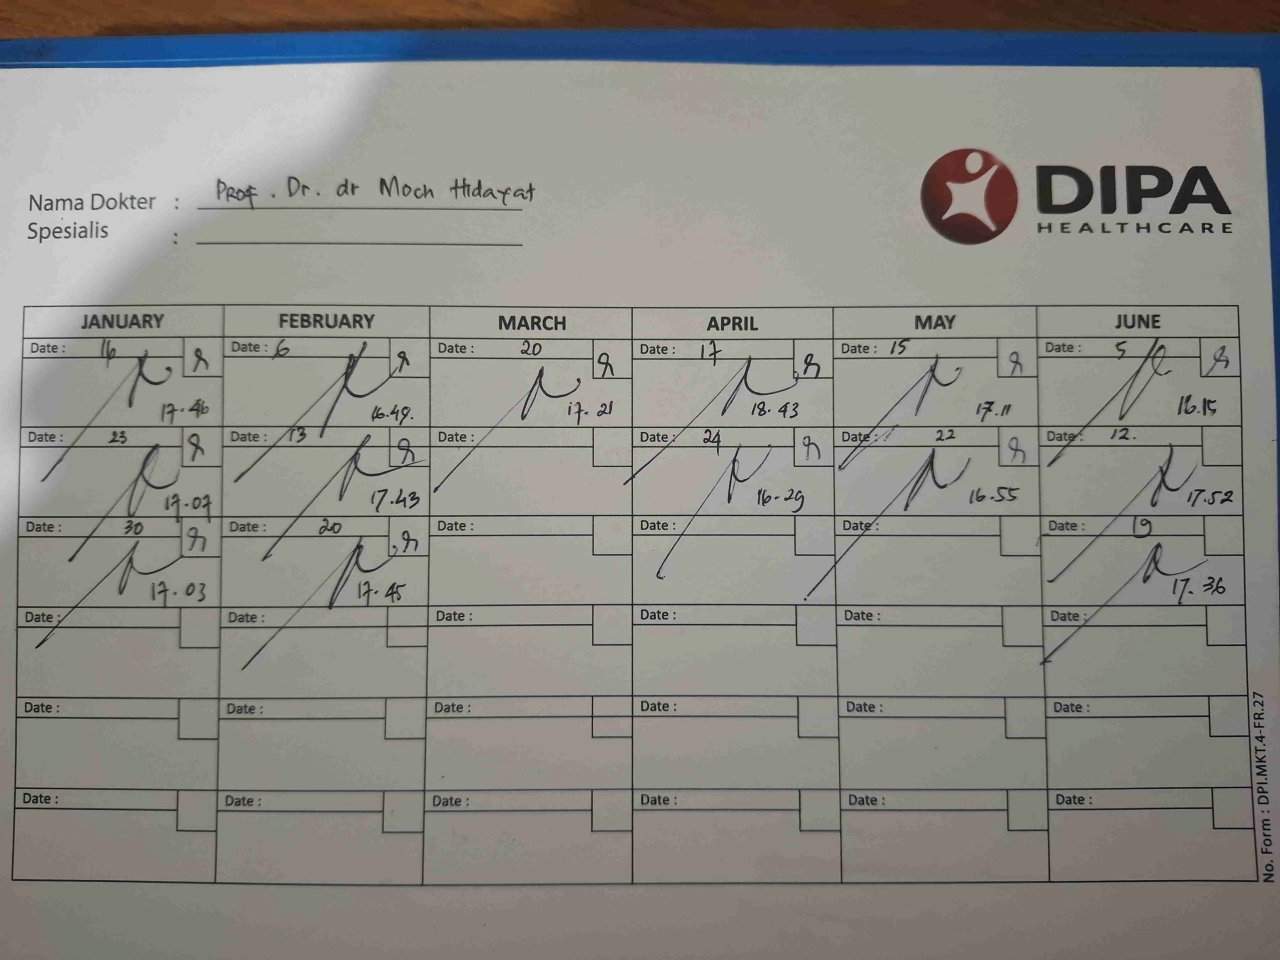 Nama Dokter : Prof. Dr. dr Moch Hidayat
Spesialis :
DIPA
HEALTHCARE
JANUARY FEBRUARY MARCH APRIL MAY JUNE
Date : 16 Date : 6 Date : 20 Date : 17 Date : 15 Date : 5
17.46 16.49. 17.21 18.43 17.11 16.15
Date : 23 Date : 13 Date : Date : 24 Date : 22 Date : 12.
17.07 17.43 16.29 16.55 17.52
Date : 30 Date : 20 Date : Date : Date : Date : 19
17.03 17.45 17.36
Date : Date : Date : Date : Date : Date :
Date : Date : Date : Date : Date : Date :
Date : Date : Date : Date : Date : Date :
No. Form : DPI.MKT.4-FR.27